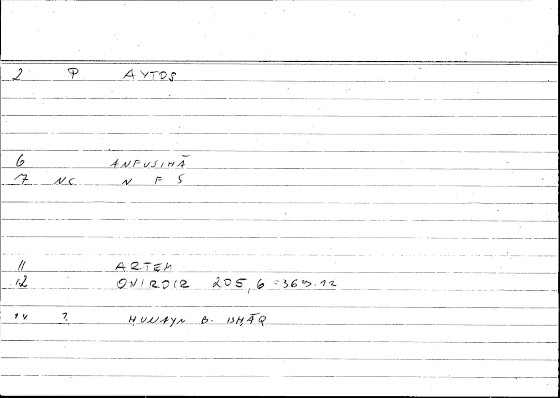 2 P AYTOS
6 ANFUSIHĀ
7 NC N F S
11 ARTEM
12 ONIROCR 205,6 = 369.12
14 ? ḤUNAYN B. ISḤĀQ